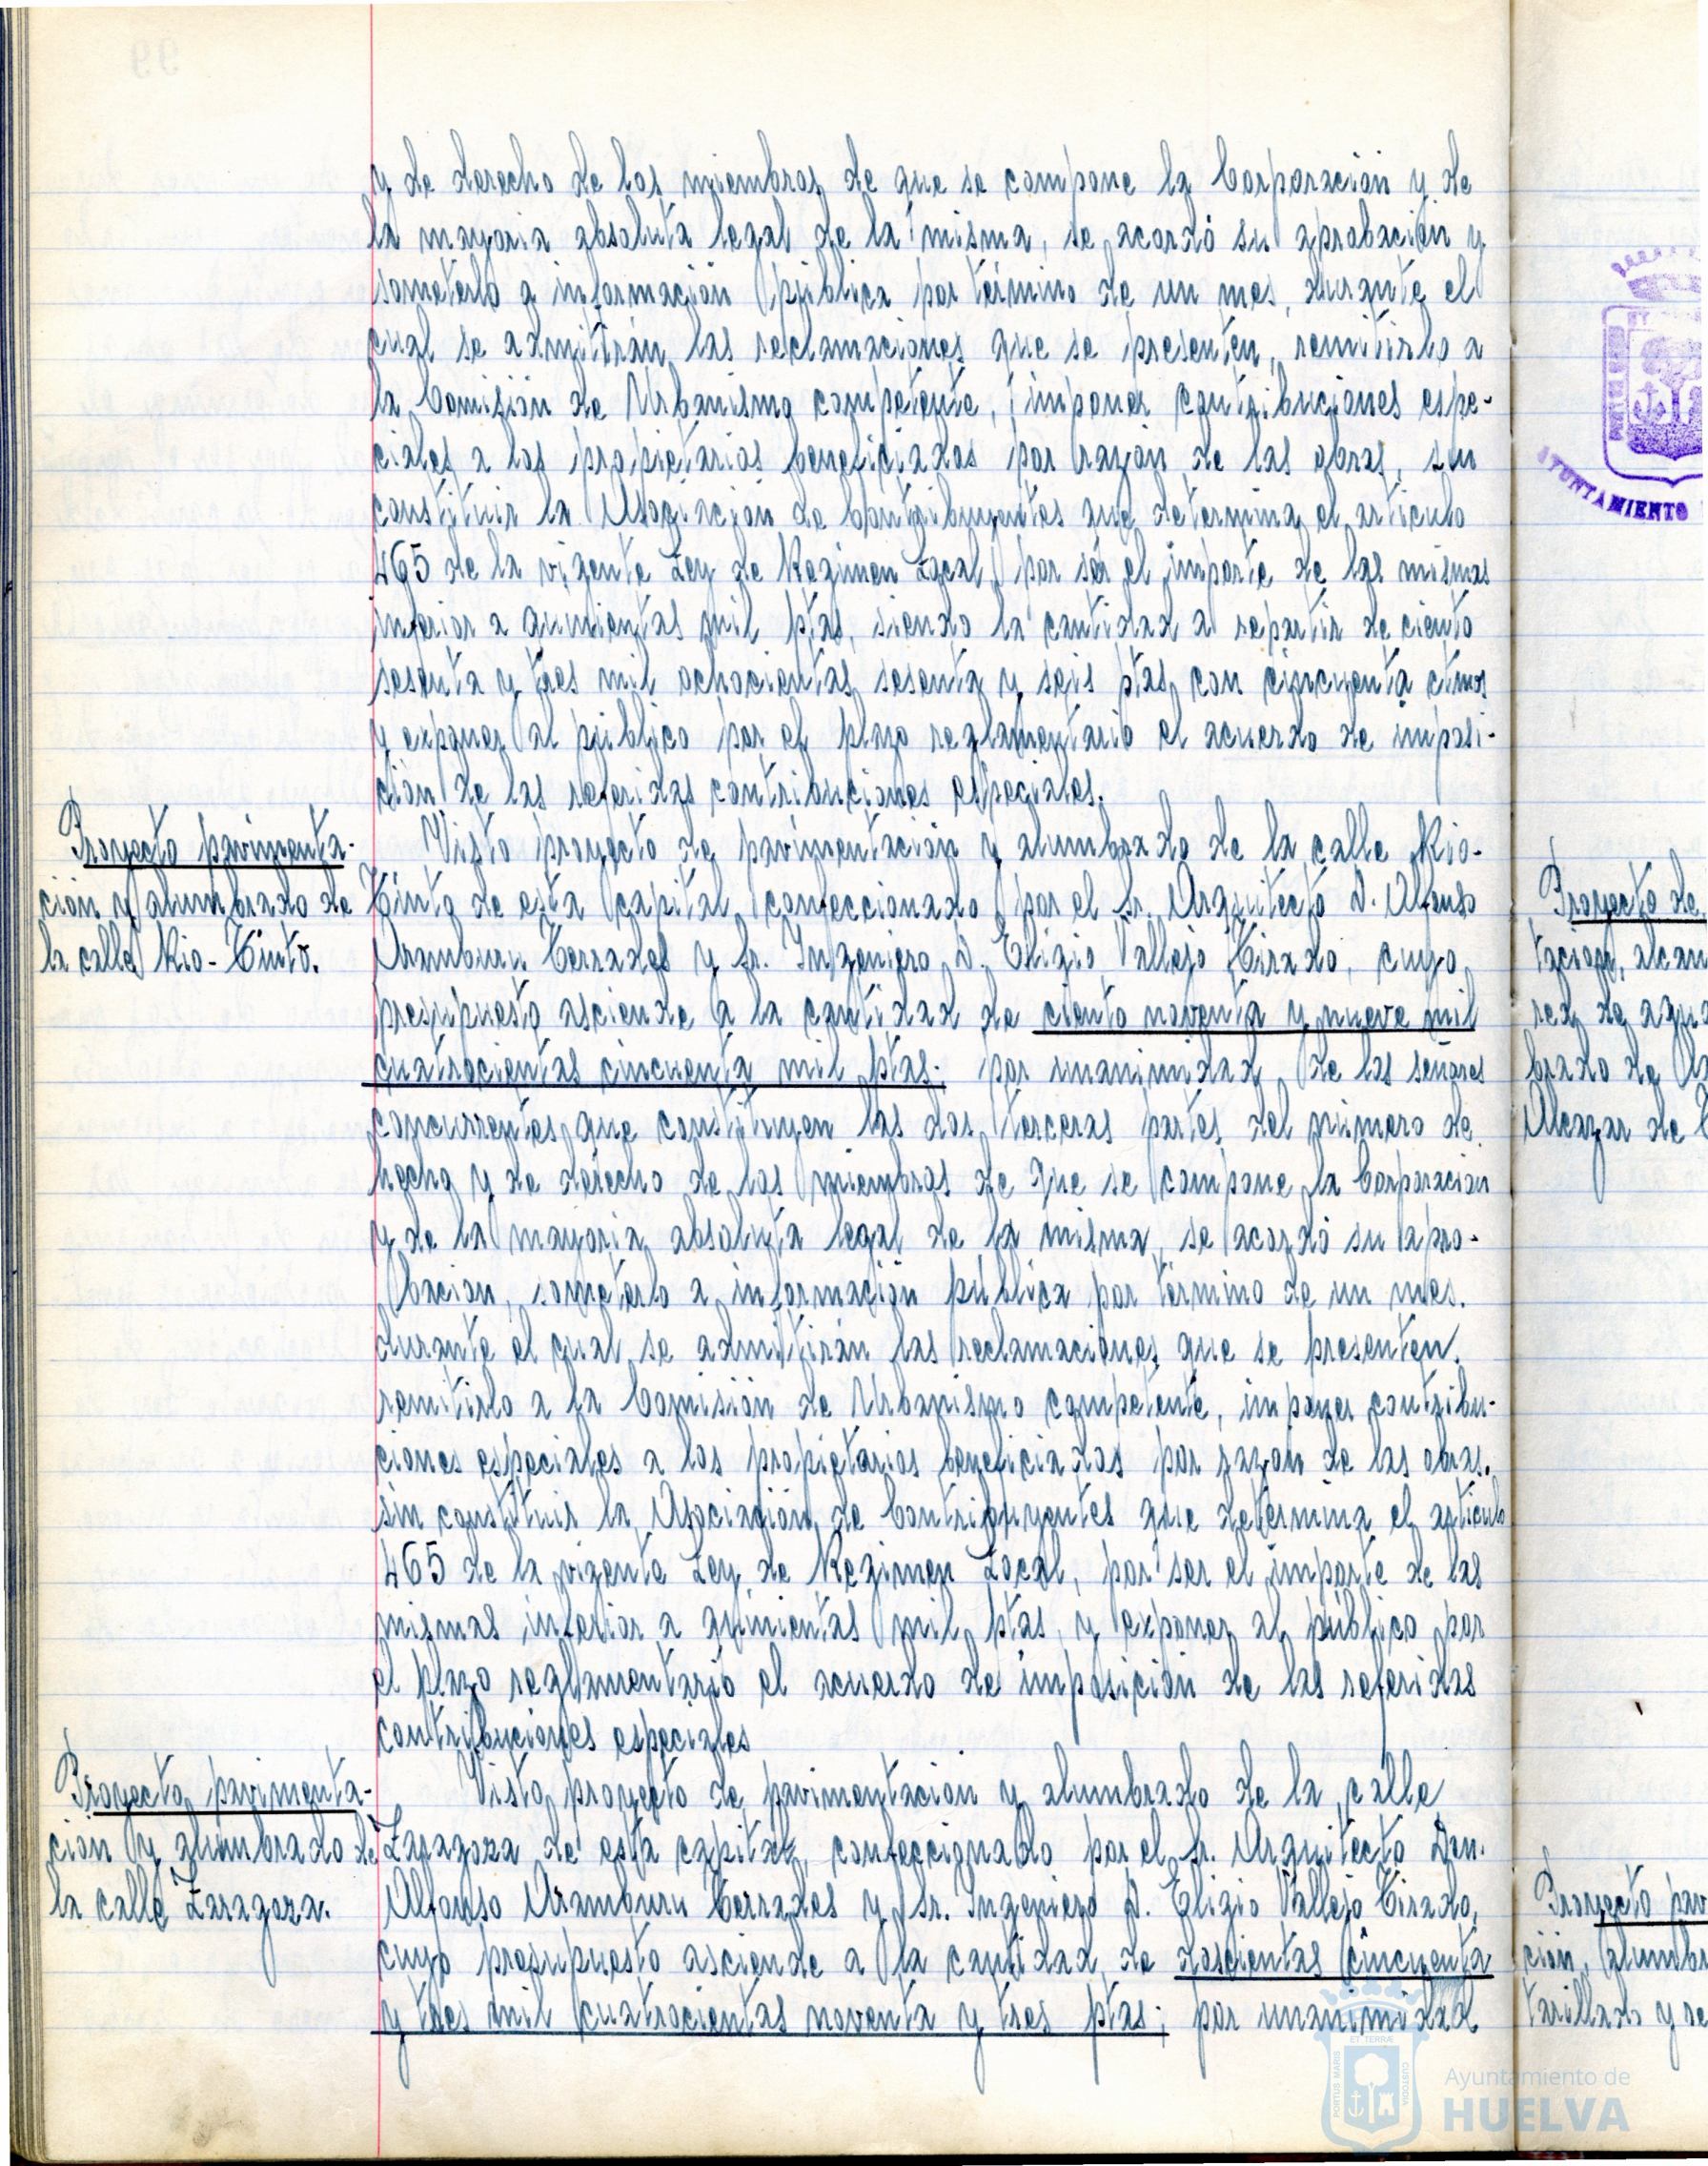 y de derecho de los miembros de que se compone la Corporación y de
la mayoria absoluta legal de la misma, se acordó su aprobación y
someterlo a información pública por término de un mes, durante el
cual se admitirán las reclamaciones que se presenten, remitirlo a
la Comisión de Urbanismo competente, imponer contribuciones espe-
ciales a los propietarios beneficiados por razón de las obras, sin
constituir la Asociación de Contribuyentes que determina el articulo
465 de la vigente Ley de Regimen Local, por ser el importe de las mismas
inferior a quinientas mil ptas, siendo la cantidad a repartir de ciento
sesenta y tres mil ochocientas sesenta y seis ptas con cincuenta ctmos
y exponer al público por el plazo reglamentario el acuerdo de imposi-
ción de las referidas contribuciones especiales.
Proyecto pavimenta-
ción y alumbrado de
la calle Rio-Tinto.
Visto proyecto de pavimentación y alumbrado de la calle Rio-
Tinto de esta capital, confeccionado por el Sr. Arquitecto D. Alfonso
Aramburu Terrades y Sr. Ingeniero D. Eligio Vallejo Tirado, cuyo
presupuesto asciende a la cantidad de ciento noventa y nueve mil
cuatrocientas cincuenta mil ptas. por unanimidad de los señores
concurrentes que constituyen las dos terceras partes del número de
hecho y de derecho de los miembros de que se compone la Corporación
y de la mayoria absoluta legal de la misma, se acordó su apro-
bación, someterlo a información pública por término de un mes.
durante el cual se admitirán las reclamaciones que se presenten.
remitirlo a la Comisión de Urbanismo competente, imponer contribu-
ciones especiales a los propietarios beneficiados por razon de las obras.
sin constituir la Asociación de Contribuyentes que determina el articulo
465 de la vigente Ley de Regimen Local, por ser el importe de las
mismas inferior a quinientas mil ptas, y exponer al público por
el plazo reglamentario el acuerdo de imposición de las referidas
contribuciones especiales
Proyecto pavimenta-
cion y alumbrado de
la calle Zaragoza.
Visto proyecto de pavimentacion y alumbrado de la calle
Zaragoza de esta capital, confeccionado por el Sr. Arquitecto Don.
Alfonso Aramburu Terrades y Sr. Ingeniero D. Eligio Vallejo Tirado,
cuyo presupuesto asciende a la cantidad de doscientas cincuenta
y tres mil cuatrocientas noventa y tres ptas; por unanimidad
AYUNTAMIENTO
Proyecto de
tacion, alcan
red de agua
brado de la
Alcazar de T
Proyecto pav
ción, alumbr
tarillado y re
Ayuntamiento de
HUELVA